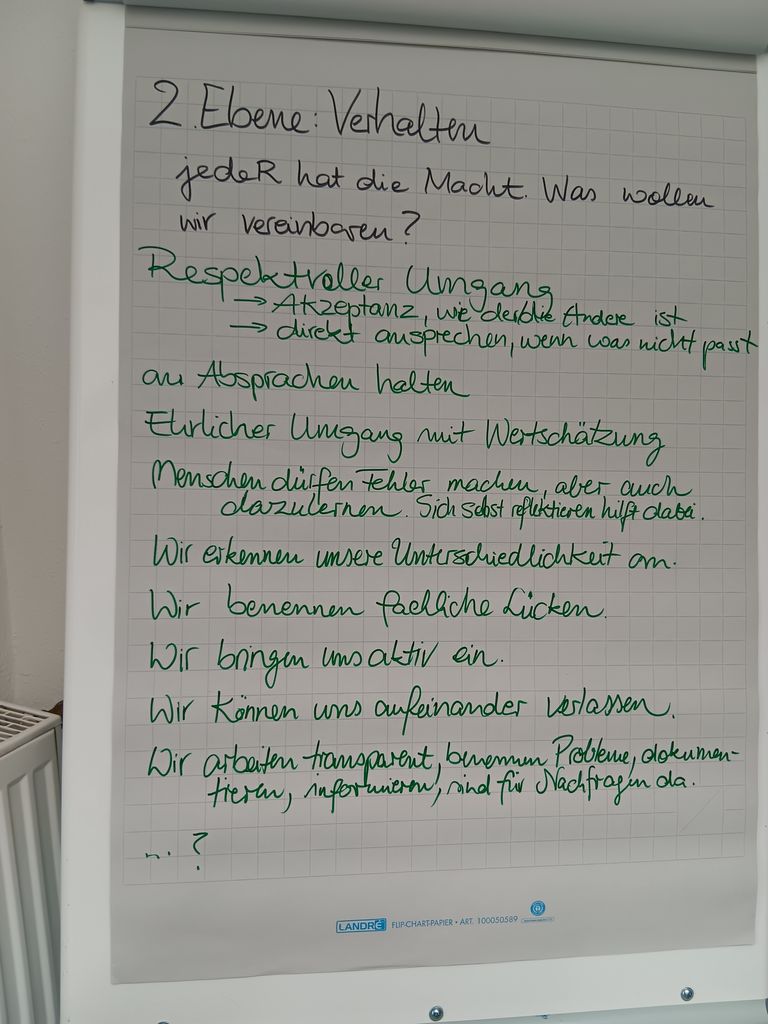 2. Ebene: Verhalten
jedeR hat die Macht. Was wollen
wir vereinbaren?
Respektvoller Umgang
→ Akzeptanz, wie der/die Andere ist
→ direkt ansprechen, wenn was nicht passt
an Absprachen halten
Ehrlicher Umgang mit Wertschätzung
Menschen dürfen Fehler machen, aber auch
dazulernen. Sich selbst reflektieren hilft dabei.
Wir erkennen unsere Unterschiedlichkeit an.
Wir benennen fachliche Lücken.
Wir bringen uns aktiv ein.
Wir können uns aufeinander verlassen.
Wir arbeiten transparent, benennen Probleme, dokumen-
tieren, informieren, sind für Nachfragen da.
... ?
LANDRÉ FLIP-CHART-PAPIER • ART. 100050589